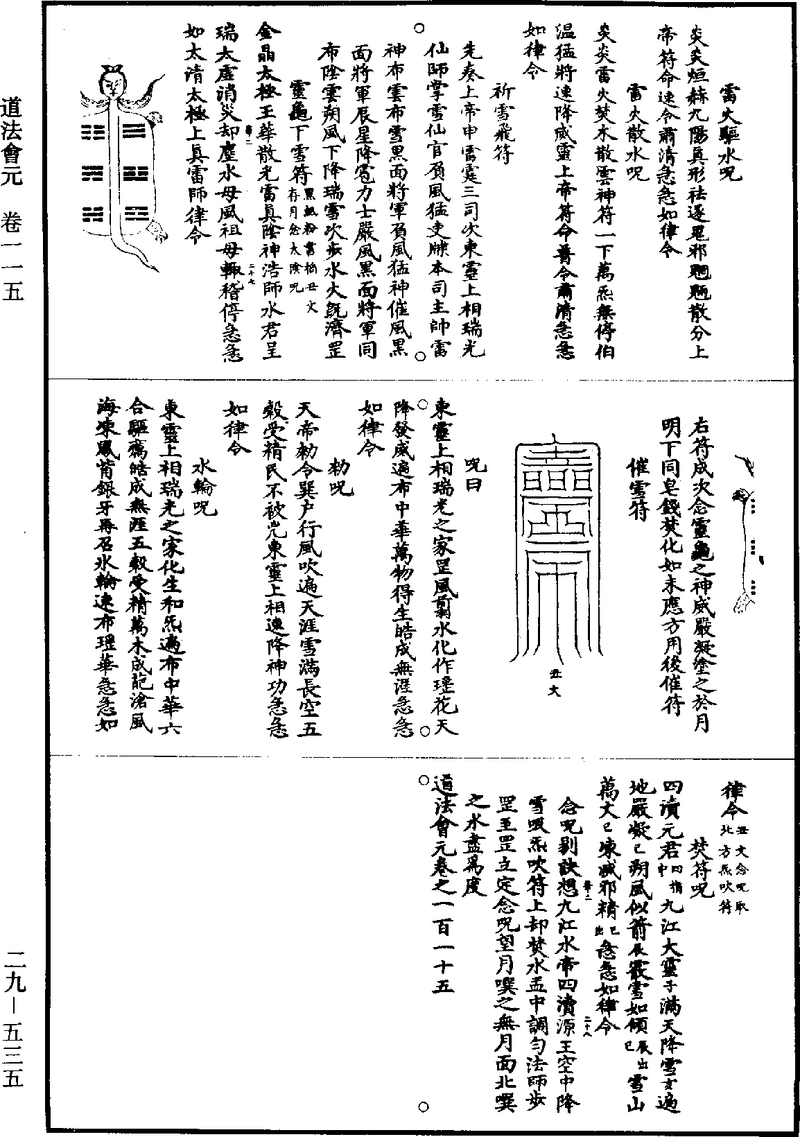 雷火驅水呪
炎炎烜赫九陽真形祛逐鬼邪魍魎散分上
帝符命速令肅清急急如律令
雷火散水呪
炎炎雷火焚木散雲神符一下萬炁無停伯
溫猛將速降威靈上帝符命普令肅清急急
如律令
祈雪飛符
先奏上帝申雷霆三司次東靈上相瑞光
仙師掌雪仙官頁風猛吏牒本司主帥雷
神布雲布雪黑面將軍頁風猛神催風黑
面將軍辰星降雹力士嚴風黑面將軍同
布陰雲朔風下降瑞雪次步水火既濟罡
靈龜下雪符黑紙粉書搯丑文存月念太陰呪
金晶太極王華散光雷真陰神浩師水君呈
瑞太虛消災却塵水母風祖母輙稽停急急
如太清太極上真雷師律令
右符成次念靈龜之神威嚴凝塗之於月
明下同皂錢焚化如未應方用後催符
催雪符
丑文
呪曰
東靈上相瑞光之家罡風翦水化作瑶花天
降發威遍布中華萬物得生皓成無涯急急
如律令
勑呪
天帝勑令巽户行風吹遍天涯雪滿長空五
穀受精民不被凶東靈上相速降神功急急
如律令
水輪呪
東靈上相瑞光之家化生和炁遍布中華六
合驅癘皓成無涯五穀受精萬木成葩滄風
海凍鳳霄銀牙再召氷輪速布瑶華急急如
律令丑文念呪取北方炁吹符
焚符呪
四瀆元君四指中九江大靈子滿天降雪亥遍
地嚴凝巳朔風似箭辰霰雪如傾辰出巳雪山
萬丈巳凍滅邪精巳出急急如律令
念呪剔訣想九江水帝四瀆源王空中降
雪吸炁吹符上却焚水盂中調勻法師步
罡至罡立定念呪望月噀之無月面北噀
之水盡爲度
道法會元卷之一百一十五
道法會元 卷一一五
二九－五三五